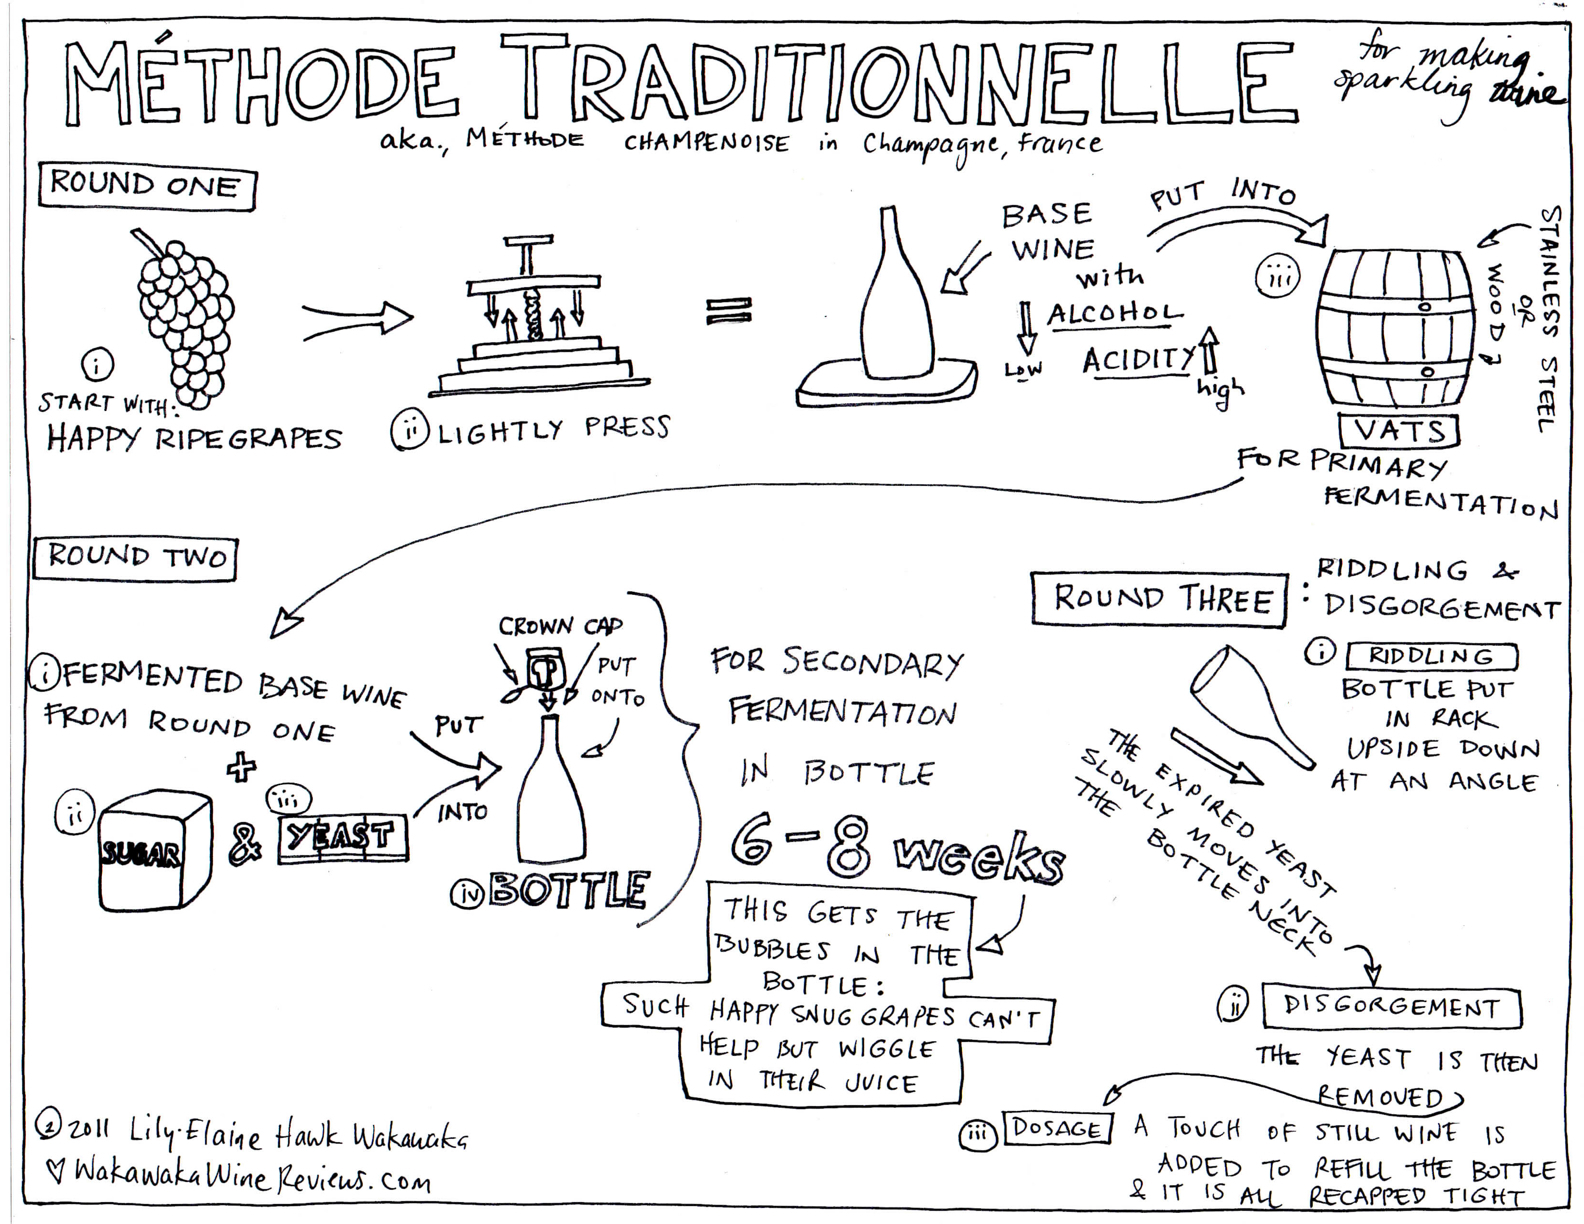 MÉTHODE TRADITIONNELLE
for making
sparkling wine
aka., MÉTHODE CHAMPENOISE in Champagne, France
ROUND ONE
i
START WITH:
HAPPY RIPE GRAPES
ii LIGHTLY PRESS
=
BASE
WINE
with
ALCOHOL
LOW
ACIDITY
high
PUT INTO
iii
STAINLESS STEEL
OR
WOOD
VATS
FOR PRIMARY
FERMENTATION
ROUND TWO
i FERMENTED BASE WINE
FROM ROUND ONE
+
ii
SUGAR
&
iii
YEAST
PUT
INTO
CROWN CAP
PUT
ONTO
iv BOTTLE
FOR SECONDARY
FERMENTATION
IN BOTTLE
6-8 weeks
THIS GETS THE
BUBBLES IN THE
BOTTLE:
SUCH HAPPY SNUG GRAPES CAN'T
HELP BUT WIGGLE
IN THEIR JUICE
ROUND THREE :
RIDDLING &
DISGORGEMENT
i RIDDLING
BOTTLE PUT
IN RACK
UPSIDE DOWN
AT AN ANGLE
THE EXPIRED YEAST
SLOWLY MOVES INTO
THE BOTTLE NECK
ii DISGORGEMENT
THE YEAST IS THEN
REMOVED
iii DOSAGE A TOUCH OF STILL WINE IS
ADDED TO REFILL THE BOTTLE
& IT IS ALL RECAPPED TIGHT
© 2011 Lily-Elaine Hawk Wakawaka
♡ WakawakaWineReviews.com